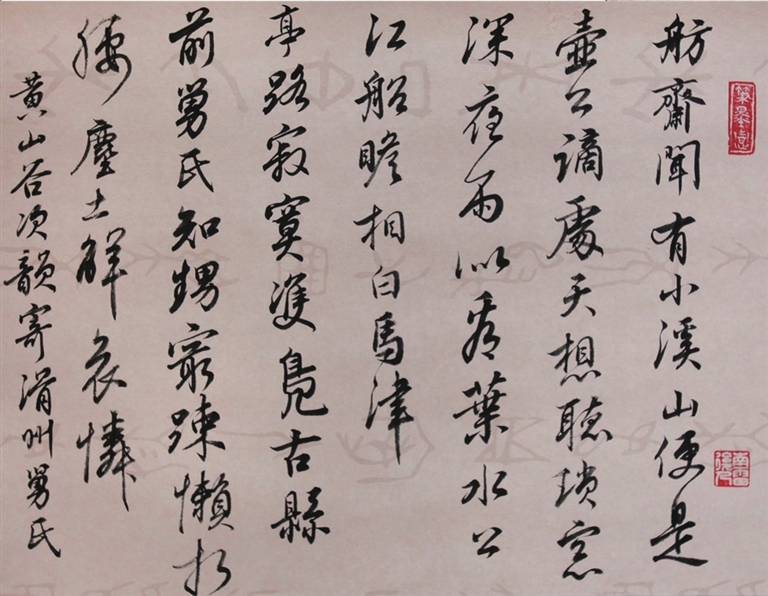 舫齋聞有小溪山便是
壺公謫處天想聽瑣窓
深夜雨似看葉水上
江船瞻相白馬津
亭路寂寞雙鳧古縣
前舅氏知甥㝡踈懶折
腰塵土解哀憐
黄山谷次韻寄滑州舅氏